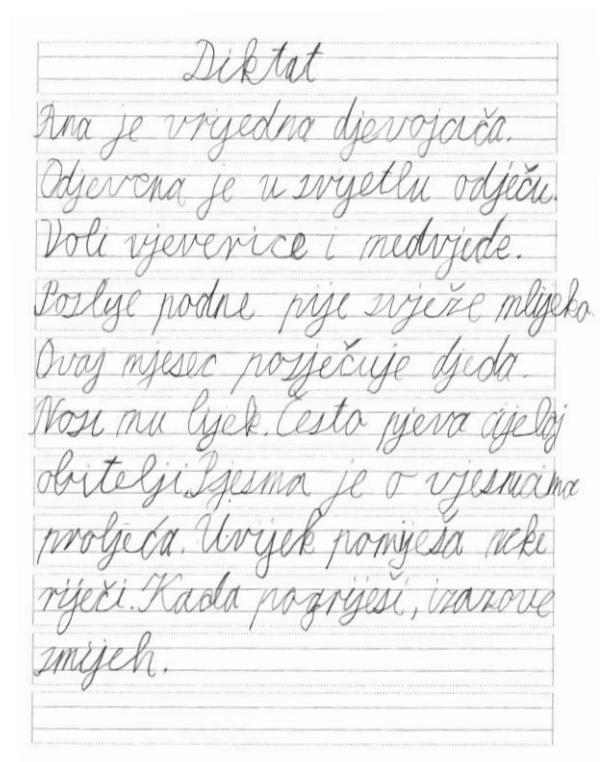 Diktat
Ana je vrijedna djevojača.
Odjevena je u svijetlu odječu.
Voli vjeverice i medvjede.
Poslije podne pije svježe mlijeko.
Ovaj mjesec posječuje djeda.
Nosi mu lijek. Često pjeva cijeloj
obitelji. Pjesma je o vjesnicima
proljeća. Uvijek pomiješa neke
riječi. Kada pogriješi, izazove
smijeh.